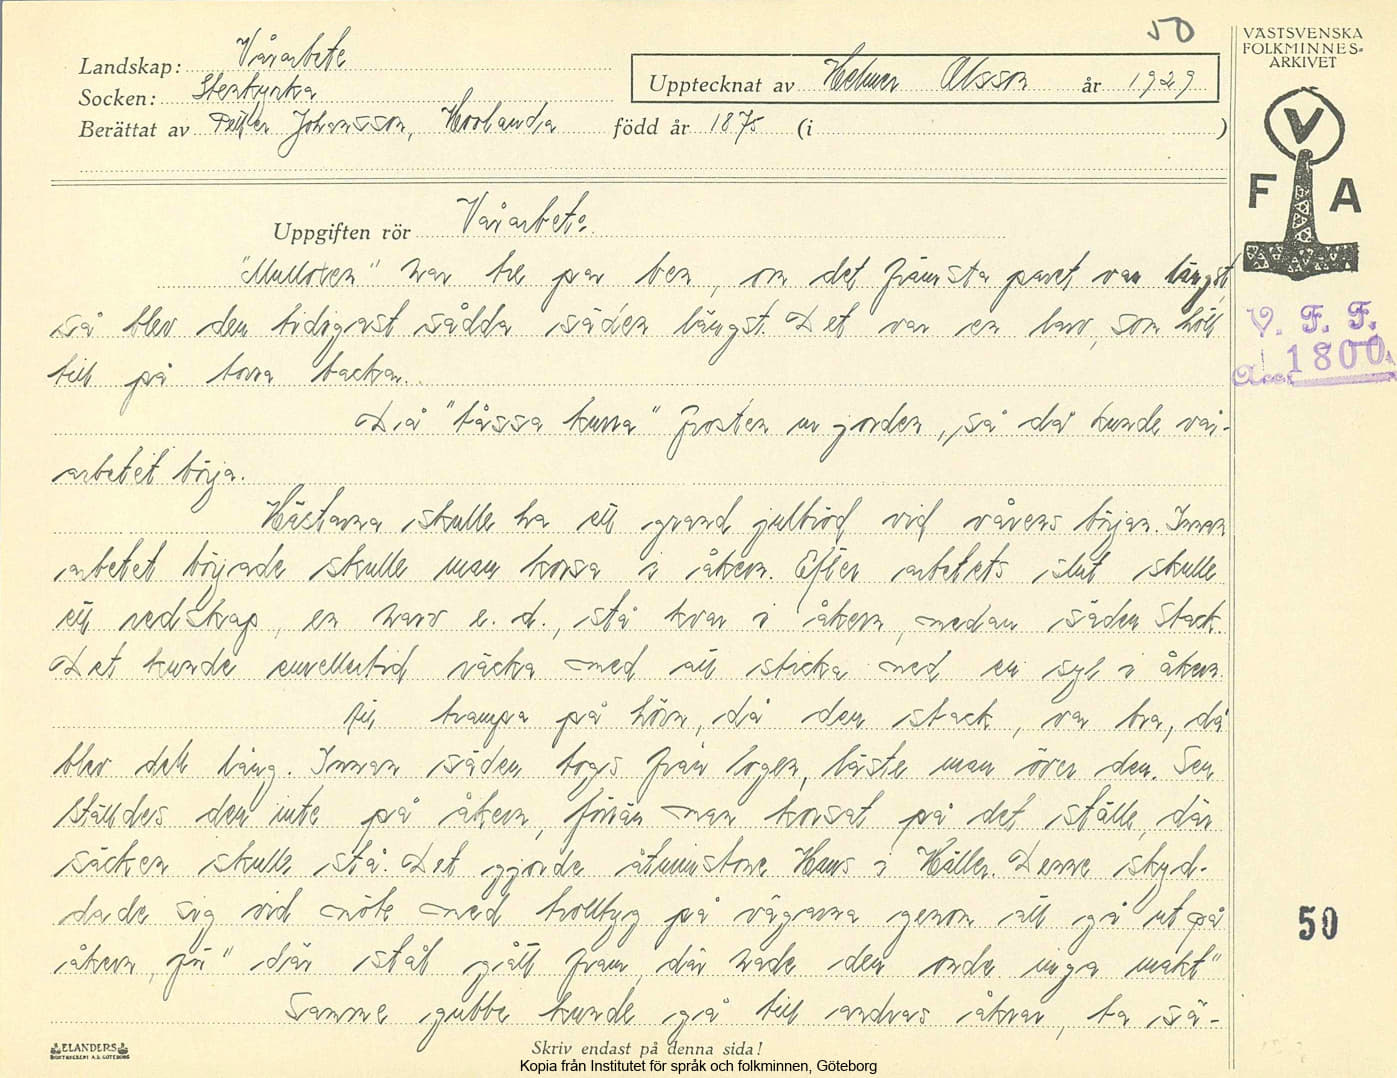 50
VÄSTSVENSKA
FOLKMINNES-
ARKIVET
Landskap: Vårarbete
Upptecknat av Helmer Olsson år 1929
Socken: Stenkyrka
Berättat av Johansson, född år 1875 (i )
V
F A
Uppgiften rör Vårarbete.
"Mulloxen" har tre par ben, om det främsta paret var längst,
så blev den tidigast sådda säden längst. Det var en larv, som höll
till på torra backar.
V. F. F.
Acc. 1800
Då "tåssa kurra" frosten ur jorden, så då kunde vår-
arbetet börja.
Hästarna skulle ha ett grand julbröd vid vårens början. Innan
arbetet började skulle man korsa i åkern. Efter arbetets slut skulle
ett redskap, en harv e. d., stå kvar i åkern, medan säden stack.
Det kunde emellertid räcka med att sticka ned en syl i åkern.
Att trampa på hörn, då den stack, var bra, då
blev det lång. Innan säden togs från logen, läste man över den. Sen
ställdes den inte på åkern, förrän man korsat på det ställe, där
säcken skulle stå. Det gjorde åtminstone Hans i Hällen. Denne skyd-
dade sig vid möte med trolltyg på vägarna genom att gå ut på
åkern, för "där stål gått fram, där hade den onde inga makt"
50
Samme gubbe kunde gå till andras åkrar, ta sä-
ELANDERS
BOKTRYCKERI A.B. GÖTEBORG
Skriv endast på denna sida!
Kopia från Institutet för språk och folkminnen, Göteborg